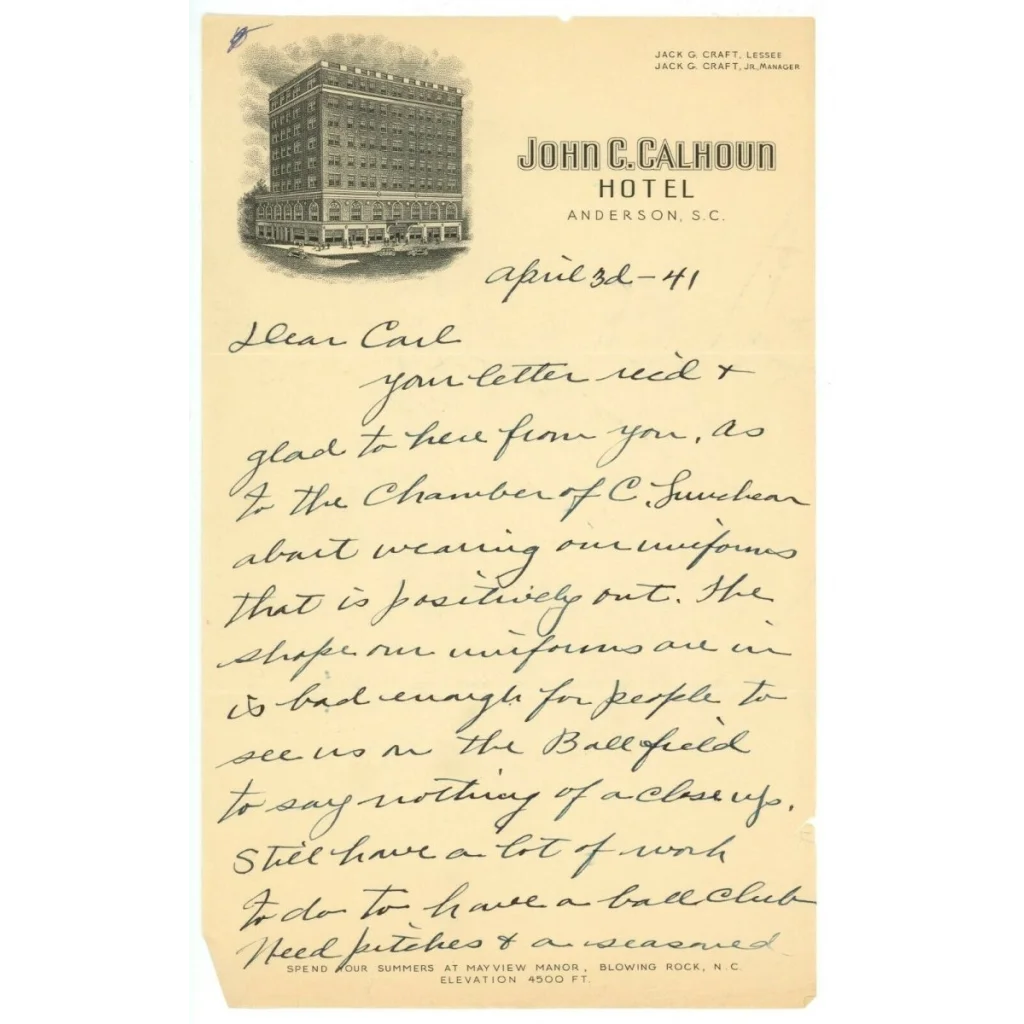 JACK G. CRAFT, LESSEE
JACK G. CRAFT, JR., MANAGER
JOHN C. CALHOUN
HOTEL
ANDERSON, S.C.
April 3d - 41
Dear Carl
your letter recd +
glad to here from you, as
to the Chamber of C. Luncheon
abart wearing our uniforms
that is positively out. The
shape our uniforms are in
is bad enough for people to
see us on the Ball field
to say nothing of a close up.
Still have a lot of work
to do to have a ball club
Need pitches + a seasoned
SPEND YOUR SUMMERS AT MAYVIEW MANOR, BLOWING ROCK, N.C.
ELEVATION 4500 FT.